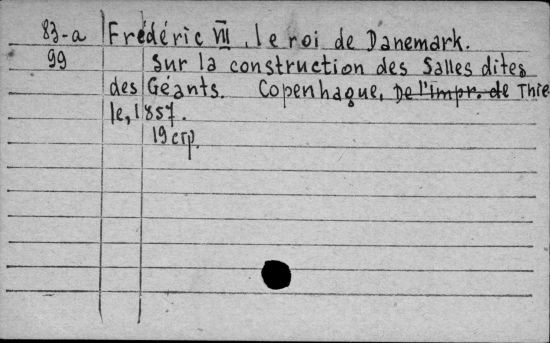 83-a Frédéric VII, le roi de Danemark.
99 Sur la construction des Salles dites
des Géants. Copenhague, De l'impr. de Thie
le, 1857.
19 стр.